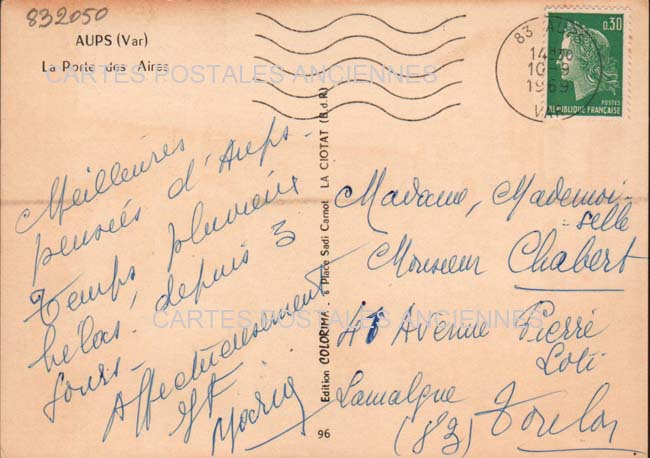 832050
AUPS (Var)
La Porte des Aires
CARTES POSTALES ANCIENNES
Meilleures
pensées d'Aups.
Temps pluvieux
hélas, depuis 3
jours.
Affectueusement
Edition COLORIMA. 6 Place Sadi Carnot LA CIOTAT (B.d.R)
96
83 AUPS
14H30
10-9
1969
VAR
0,30
POSTES
REPUBLIQUE FRANÇAISE
Madame, Mademoi-
selle
Monsieur Chabert
Avenue Pierre
Loti
Lamalgue
(83) Toulon
CARTES POSTALES ANCIENNES